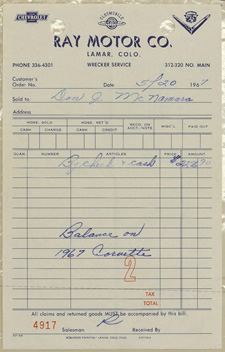 CHEVROLET
OLDSMOBILE
RAY MOTOR CO.
LAMAR, COLO.
PHONE 336-4301 WRECKER SERVICE 312-320 NO. MAIN
Customer's
Order No. Date 5/20 1967
Sold to Don J. McNamara
Address
MDSE. SOLD MDSE. RET'D REC'D. ON ACC'T. NOTE MISC'L PAID OUT
CASH CHARGE CASH CREDIT
QUAN. NUMBER ARTICLES PRICE AMOUNT
By check & cash
Balance on
1967 Corvette
2
TAX
TOTAL
All claims and returned goods MUST be accompanied by this bill.
4917 Salesman R Received By